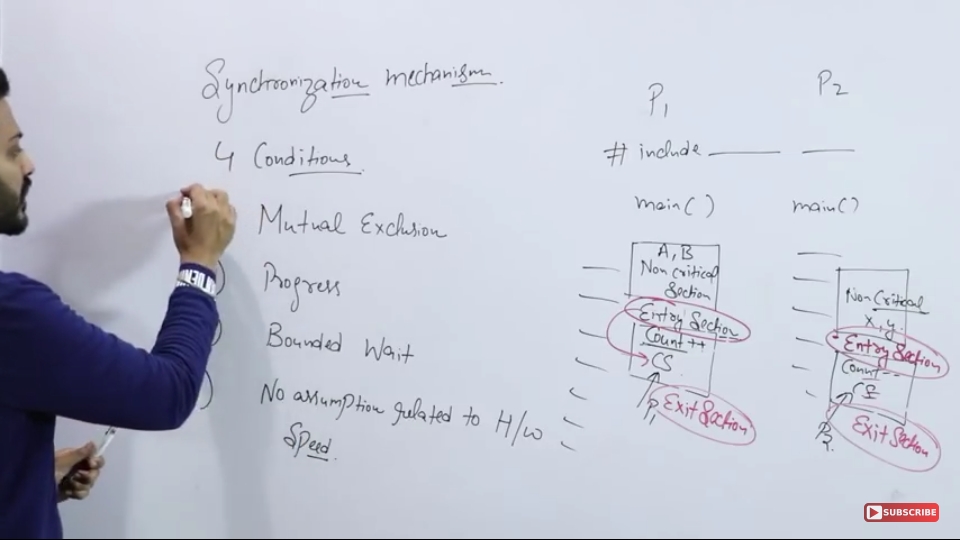 Synchronization mechanism.
4 Conditions.
Mutual Exclusion
) Progress
) Bounded Wait
) No assumption related to H/w
Speed.
P1
# include
main( )
A, B
Non critical
Section
Entry Section
Count ++
CS
P1
Exit Section
P2
main( )
Non Critical
x, y.
Entry Section
Count --
CS
P2.
Exit Section
SUBSCRIBE